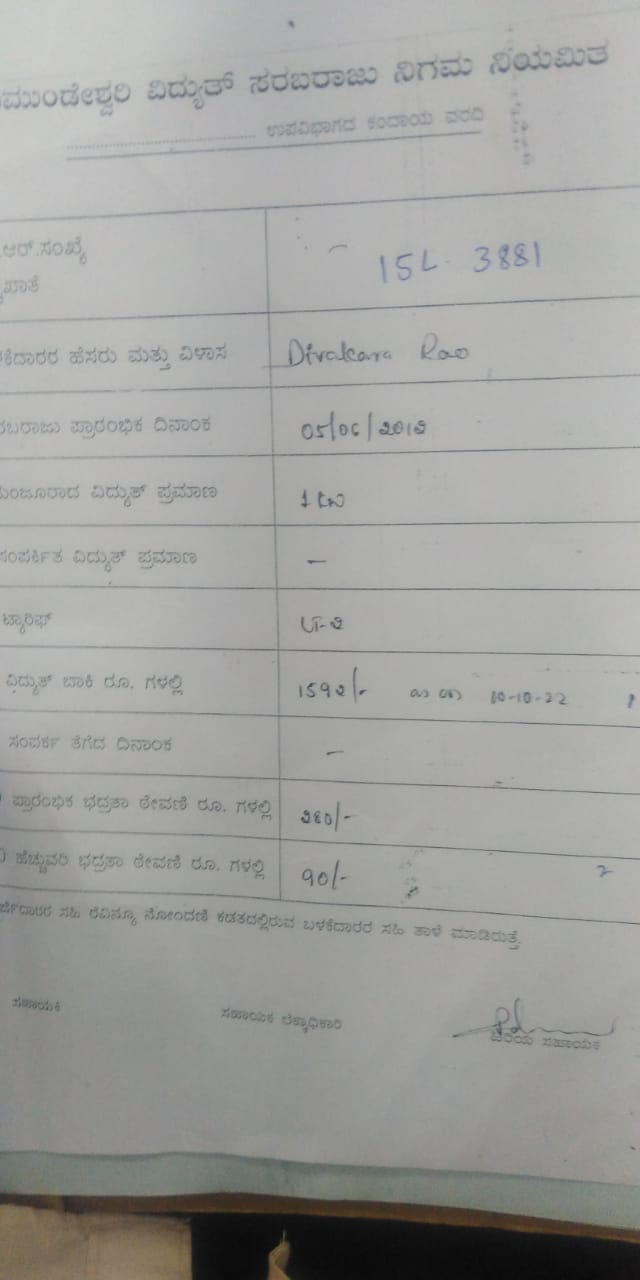 ಮುಂಡೇಶ್ವರಿ ವಿದ್ಯುತ್ ಸರಬರಾಜು ನಿಗಮ ನಿಯಮಿತ
........................................ ಉಪವಿಭಾಗದ ಕಂದಾಯ ವರದಿ
.ಆರ್.ಸಂಖ್ಯೆ
ಖಾತೆ
15L. 3881
ಕೆದಾರರ ಹೆಸರು ಮತ್ತು ವಿಳಾಸ Divakara Rao
ಬರಾಜು ಪ್ರಾರಂಭಿಕ ದಿನಾಂಕ 05/06/2012
ಮಂಜೂರಾದ ವಿದ್ಯುತ್ ಪ್ರಮಾಣ 1 KW
ಸಂಪರ್ಕಿತ ವಿದ್ಯುತ್ ಪ್ರಮಾಣ —
ಟ್ಯಾರಿಫ್
ವಿದ್ಯುತ್ ಬಾಕಿ ರೂ. ಗಳಲ್ಲಿ 1592/- 10-10-22
ಸಂಪರ್ಕ ತೆಗೆದ ದಿನಾಂಕ —
) ಪ್ರಾರಂಭಿಕ ಭದ್ರತಾ ಠೇವಣಿ ರೂ. ಗಳಲ್ಲಿ 280/-
) ಹೆಚ್ಚುವರಿ ಭದ್ರತಾ ಠೇವಣಿ ರೂ. ಗಳಲ್ಲಿ 90/-
ರ್ಜಿದಾರರ ಸಹಿ ರೆವಿನ್ಯೂ ನೋಂದಣಿ ಕಡತದಲ್ಲಿರುವ ಬಳಕೆದಾರರ ಸಹಿ ತಾಳೆ ಮಾಡಿರುತ್ತೆ.
ಸಹಾಯಕಿ ಸಹಾಯಕ ಲೆಕ್ಕಾಧಿಕಾರಿ ಹಿರಿಯ ಸಹಾಯಕ